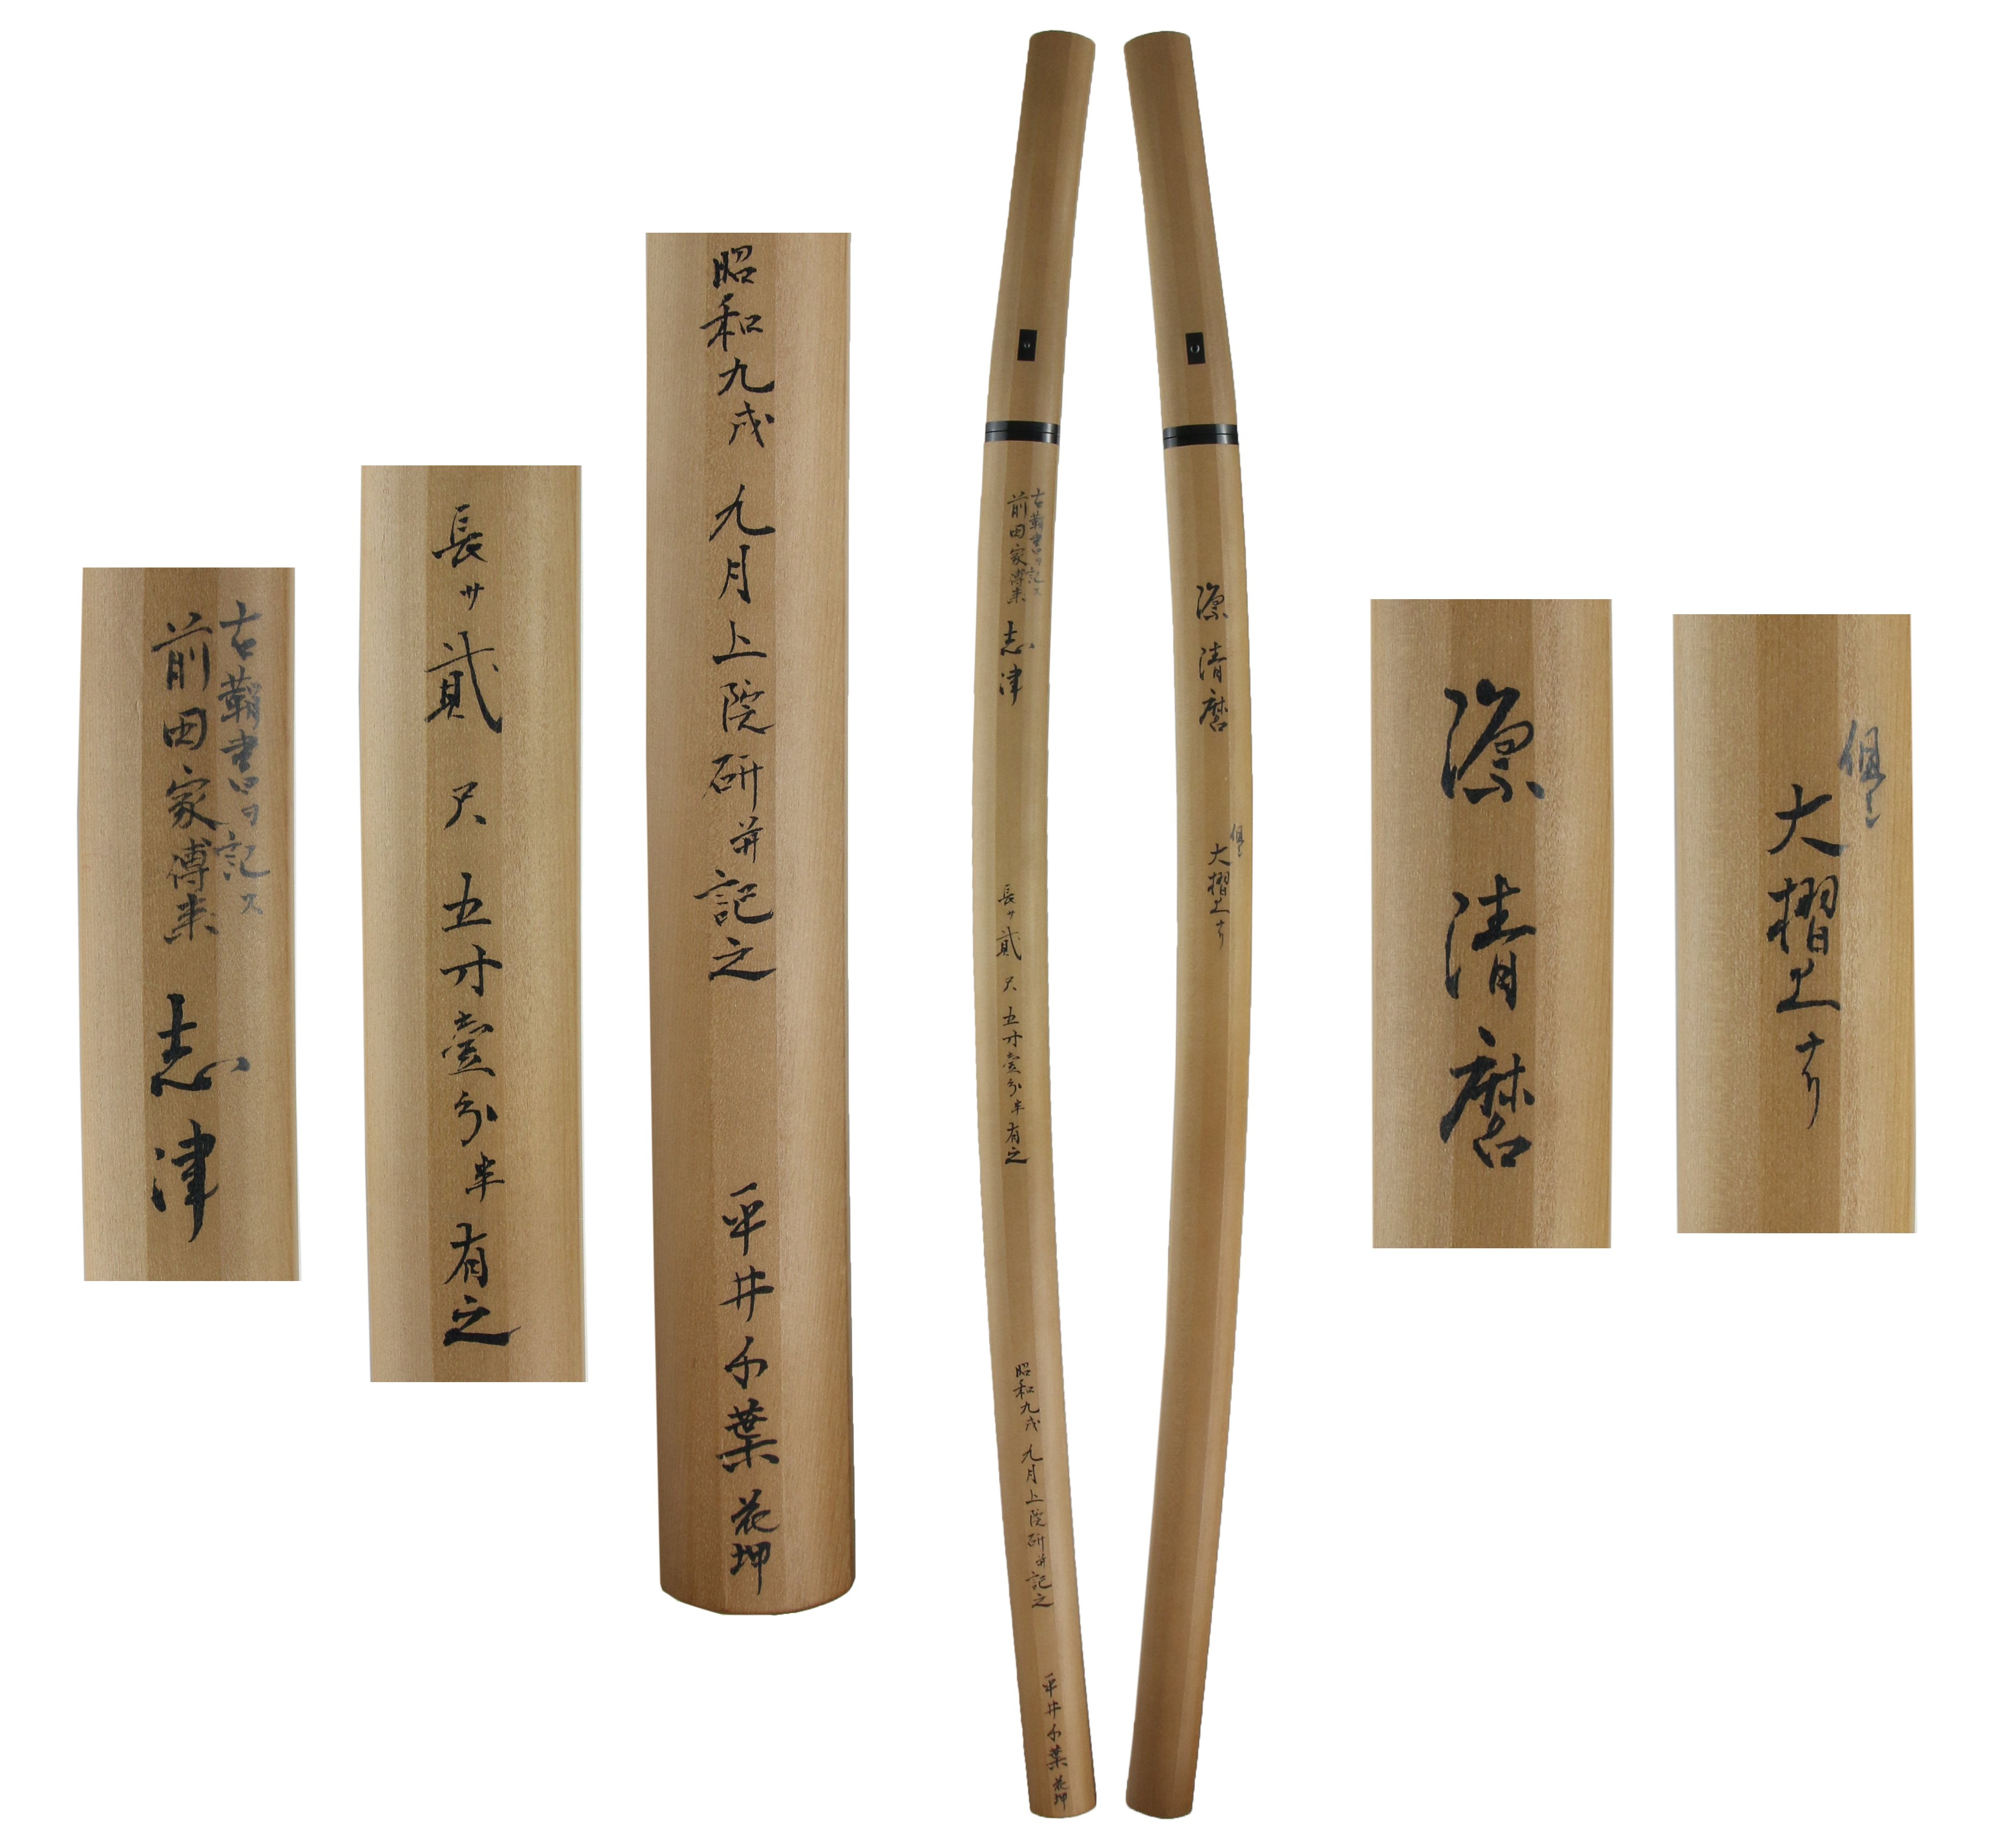 古鞘書ヲ記ス
前田家傳来 志津
長サ貳尺五寸壹分半有之
昭和九戌 九月上院研并記之 平井千葉 花押
古鞘書ヲ記ス
前田家傳来 志津 長サ貳尺五寸壹分半有之 昭和九戌 九月上院研并記之 平井千葉 花押
源清麿
但シ
大摺上ナリ
源清麿
但シ
大摺上ナリ